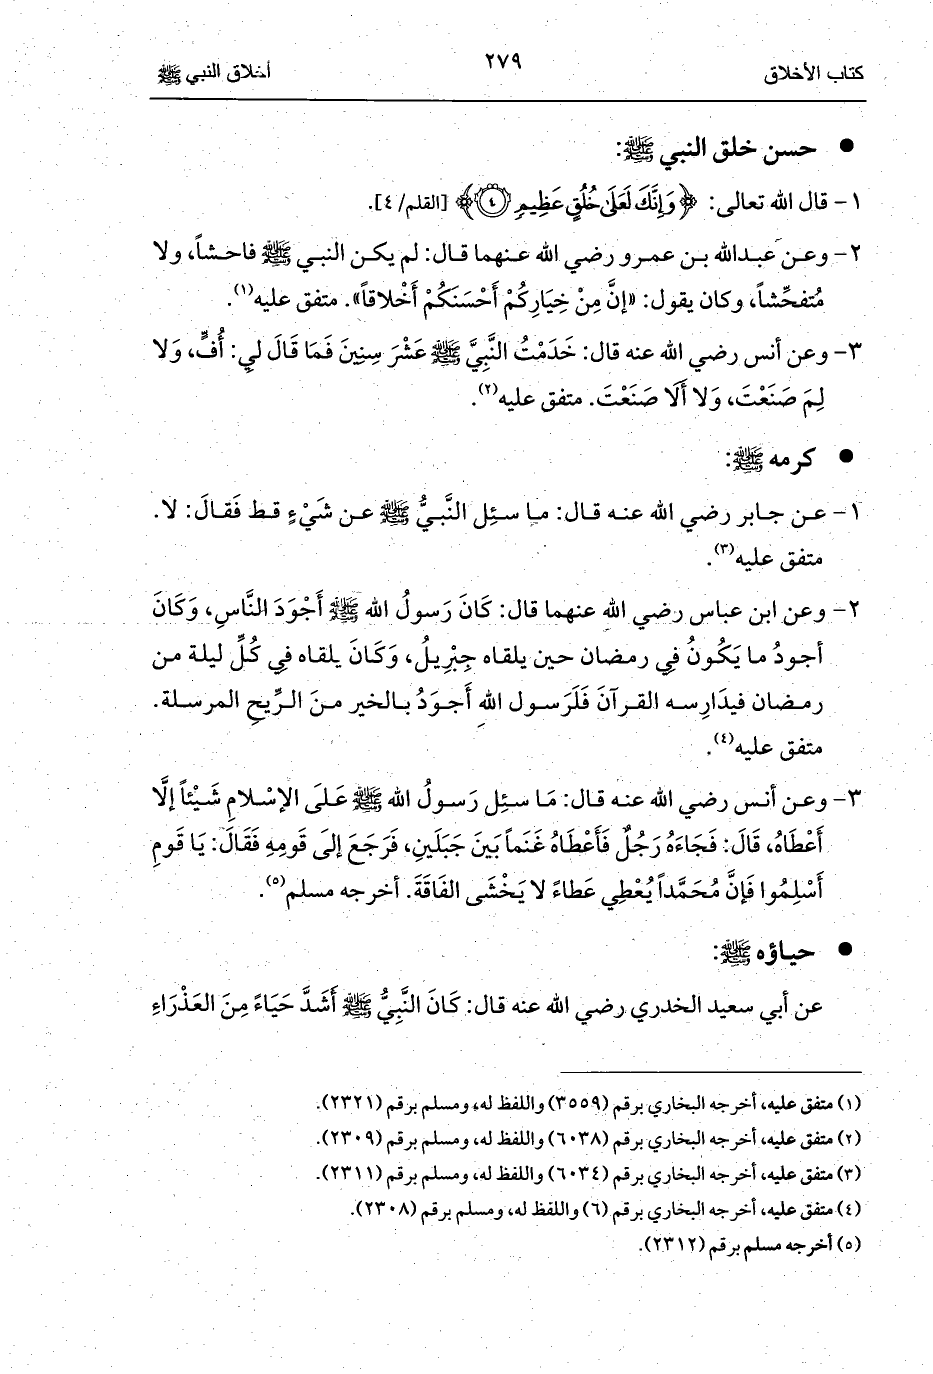 كتاب الأخلاق ٢٧٩ أخلاق النبي ﷺ
● حسن خلق النبي ﷺ:
١- قال الله تعالى: ﴿وَإِنَّكَ لَعَلَىٰ خُلُقٍ عَظِيمٍ ٤﴾ [القلم/ ٤].
٢- وعن عبدالله بن عمرو رضي الله عنهما قال: لم يكن النبي ﷺ فاحشاً، ولا
مُتفحِّشاً، وكان يقول: «إنَّ مِنْ خِيَارِكُمْ أَحْسَنَكُمْ أَخْلاقاً». متفق عليه(١).
٣- وعن أنس رضي الله عنه قال: خَدَمْتُ النَّبِيَّ ﷺ عَشْرَ سِنِينَ فَمَا قَالَ لي: أُفٍّ، وَلا
لِمَ صَنَعْتَ، وَلا أَلَا صَنَعْتَ. متفق عليه(٢).
● كرمه ﷺ:
١- عن جابر رضي الله عنه قال: ما سئِل النَّبيُّ ﷺ عن شَيْءٍ قط فَقالَ: لا.
متفق عليه(٣).
٢- وعن ابن عباس رضي الله عنهما قال: كَانَ رَسولُ الله ﷺ أَجْوَدَ النَّاسِ، وَكَانَ
أجودُ ما يَكُونُ فِي رمضان حين يلقاه جِبْرِيلُ، وَكَانَ يلقاه فِي كُلِّ ليلة من
رمضان فيدَارِسه القرآنَ فَلَرَسول اللهِ أَجوَدُ بالخير منَ الرِّيحِ المرسلة.
متفق عليه(٤).
٣- وعن أنس رضي الله عنه قال: مَا سئِل رَسولُ الله ﷺ عَلَى الإسْلامِ شَيْئاً إلَّا
أَعْطَاهُ، قَالَ: فَجَاءَهُ رَجُلٌ فَأَعْطَاهُ غَنَماً بَينَ جَبَلَينِ، فَرَجَعَ إلىَ قَومِهِ فَقَالَ: يَا قَومِ
أَسْلِمُوا فَإنَّ مُحَمَّداً يُعْطِي عَطاءً لا يَخْشَى الفَاقَةَ. أخرجه مسلم(٥).
● حياؤه ﷺ:
عن أبي سعيد الخدري رضي الله عنه قال: كَانَ النَّبِيُّ ﷺ أَشَدَّ حَيَاءً مِنَ العَذْرَاءِ
(١) متفق عليه، أخرجه البخاري برقم (٣٥٥٩) واللفظ له، ومسلم برقم (٢٣٢١).
(٢) متفق عليه، أخرجه البخاري برقم (٦٠٣٨) واللفظ له، ومسلم برقم (٢٣٠٩).
(٣) متفق عليه، أخرجه البخاري برقم (٦٠٣٤) واللفظ له، ومسلم برقم (٢٣١١).
(٤) متفق عليه، أخرجه البخاري برقم (٦) واللفظ له، ومسلم برقم (٢٣٠٨).
(٥) أخرجه مسلم برقم (٢٣١٢).